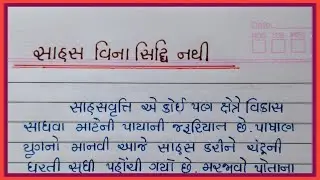 સાહસ વિના સિદ્ધિ નથી
સાહસવૃત્તિ એ કોઈ પણ ક્ષેત્રે વિકાસ
સાધવા માટેની પાયાની જરૂરિયાત છે. પાષાણ
યુગનો માનવી આજે સાહસ કરીને ચંદ્રની
ધરતી સુધી પહોંચી ગયો છે. મરજીવો પોતાના